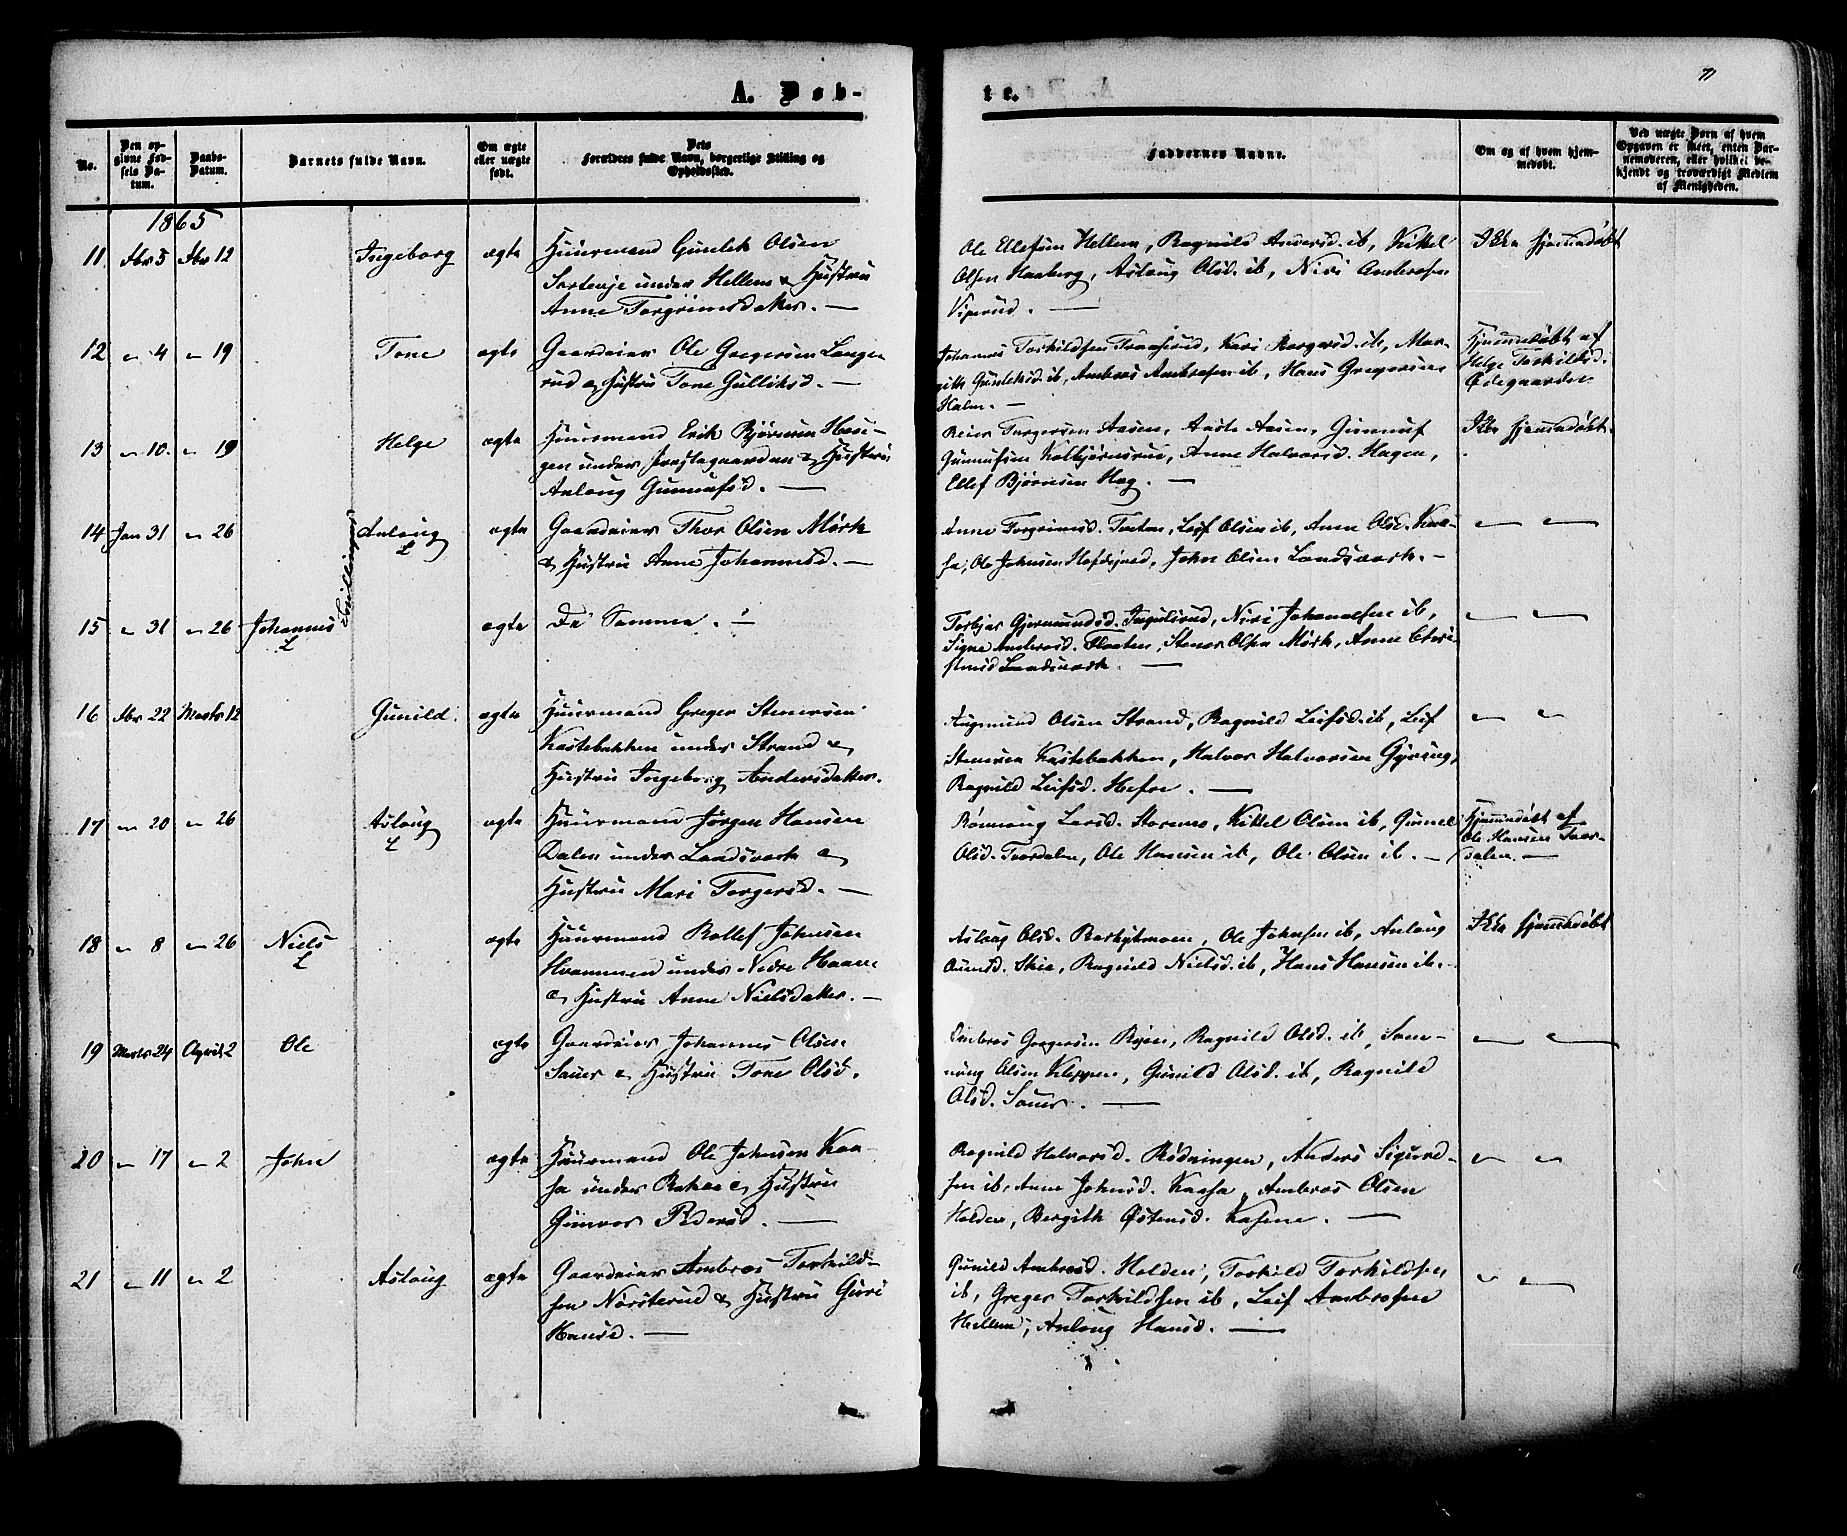 A. Døb-
te.
No.
Den opgivne Fødsels Datum.
Daabs-Datum.
Barnets fulde Navn.
Om ægte eller uægte født.
Dets Forældres fulde Navn, borgerlige Stilling og Opholdssted.
Faddernes Navne.
Om og af hvem hjemmedøbt.
Ved uægte Børn af hvem Opgaven er skeet, enten Barnemoderen, eller hvilket bekjendt og troværdigt Medlem af Menigheden.
1865
11 Fbr 5 Fbr 12 Ingeborg ægte Huusmand Gunlek Olsen
under Hellem & Hustru
Anne Torgrimsdatter. —
Ole Ellefsen Hellem, Ragnild Andersd. ib, Kittel
Olsen Haaberg, Aslaug Olsd. ib, Niri Ambrosen
Viperud. —
Ikke hjemmedøbt
12 " 4 " 19 Tone ægte Gaardeier Ole Gregersen Lange-
rud & Hustru Tone Gulliksd. —
Johannes Torkildsen Traaserud, Kari ib, Mar-
gith Gunleksd. ib, Ambros Ambrosen ib, Hans Gregersen
Holm. —
Hjemmedøbt af
Helge Torkilds.
Ødegaarden
13 " 10. " 19 Helge ægte Huusmand Erik Bjørnsen
under Præstegaarden & Hustru
Anlaug Gunnufsd. —
Reier Torgersen Aasen, Aaste Aasen, Gunnuf
Gunnufsen Kolbjørnsrud, Anne Halvorsd. Hagen,
Ellef Bjørnsen Hag. —
Ikke hjemmedøbt.
14 Jan 31 " 26 Anlaug ægte Gaardeier Thor Olsen Mørk
& Hustru Anne Johannesd. —
Anne Torgrimsd. Tveten, Leif Olsen ib, Anne Olsd. Kaa-
sa, Ole Johnsen, John Olsen Landsverk. —
Tvillinger
15 " 31 " 26 Johannes ægte De Samme. —
Torbjør Gjermundsd. Ingulsrud, Niri Johannesen ib,
Signe Ambrosd. Flaaten, Stener Olsen Mørk, Anne Chri-
stensd Landsverk. —
16 Fbr 22 Marts 12 Gunild. ægte Huusmand Greger Stenersen
Kastebakken under Strand &
Hustru Ingeborg Andersdatter.
Augmund Olsen Strand, Ragnild Leifsd. ib, Leif
Stenersen Kastebakken, Halvor Halvorsen Gyring,
Ragnild Leifsd. Hefre. —
17 " 20 " 26 Aslaug ægte Huusmand Jørgen Hansen
Dalen under Landsverk &
Hustru Mari Torgersd. —
Rønnoug Larsd. Storemo, Kittel Olsen ib, Gunnel
Olsd. Tverdalen, Ole Hansen ib, Ole Olsen ib. —
Hjemmedøbt af
Ole Hansen Tver-
dalen. —
18 " 8 " 26 Niels ægte Huusmand Rollef Johnsen
Hvammen under Nedre Haave
& Hustru Anne Nielsdatter. —
Aslaug Olsd., Ole Johnsen ib, Anlaug
Skie, Ragnild Nielsd. ib, Hans Hansen ib.
Ikke hjemmedøbt
19 Marts 24 April 2 Ole ægte Gaardeier Johannes Olsen
Sauer & Hustru Tone Olsd.
Ambros Gregersen Ryen, Ragnild Olsd. ib, Sam-
nung Olsen Kleppen, Gunild Olsd. ib, Ragnild
Olsd. Sauer. —
20 " 17 " 2 John ægte Huusmand Ole Johnsen Kaa-
sa under Bakke & Hustru
Gunvor Pedersd. —
Ragnild Halvorsd. Rødningen, Anders Sigurd-
sen ib, Anne Johnsd. Kaasa, Ambros Olsen
Holden, Bergith Østensd. Kasene. —
21 " 11 " 2 Aslaug ægte Gaardeier Ambros Torkild-
sen Nørsterud & Hustru Guri
Hansd. —
Gunild Ambrosd. Holden, Torkild Torkildsen
ib, Greger Torkildsen ib, Leif Ambrosen
Hellem, Anlaug Hansd. —